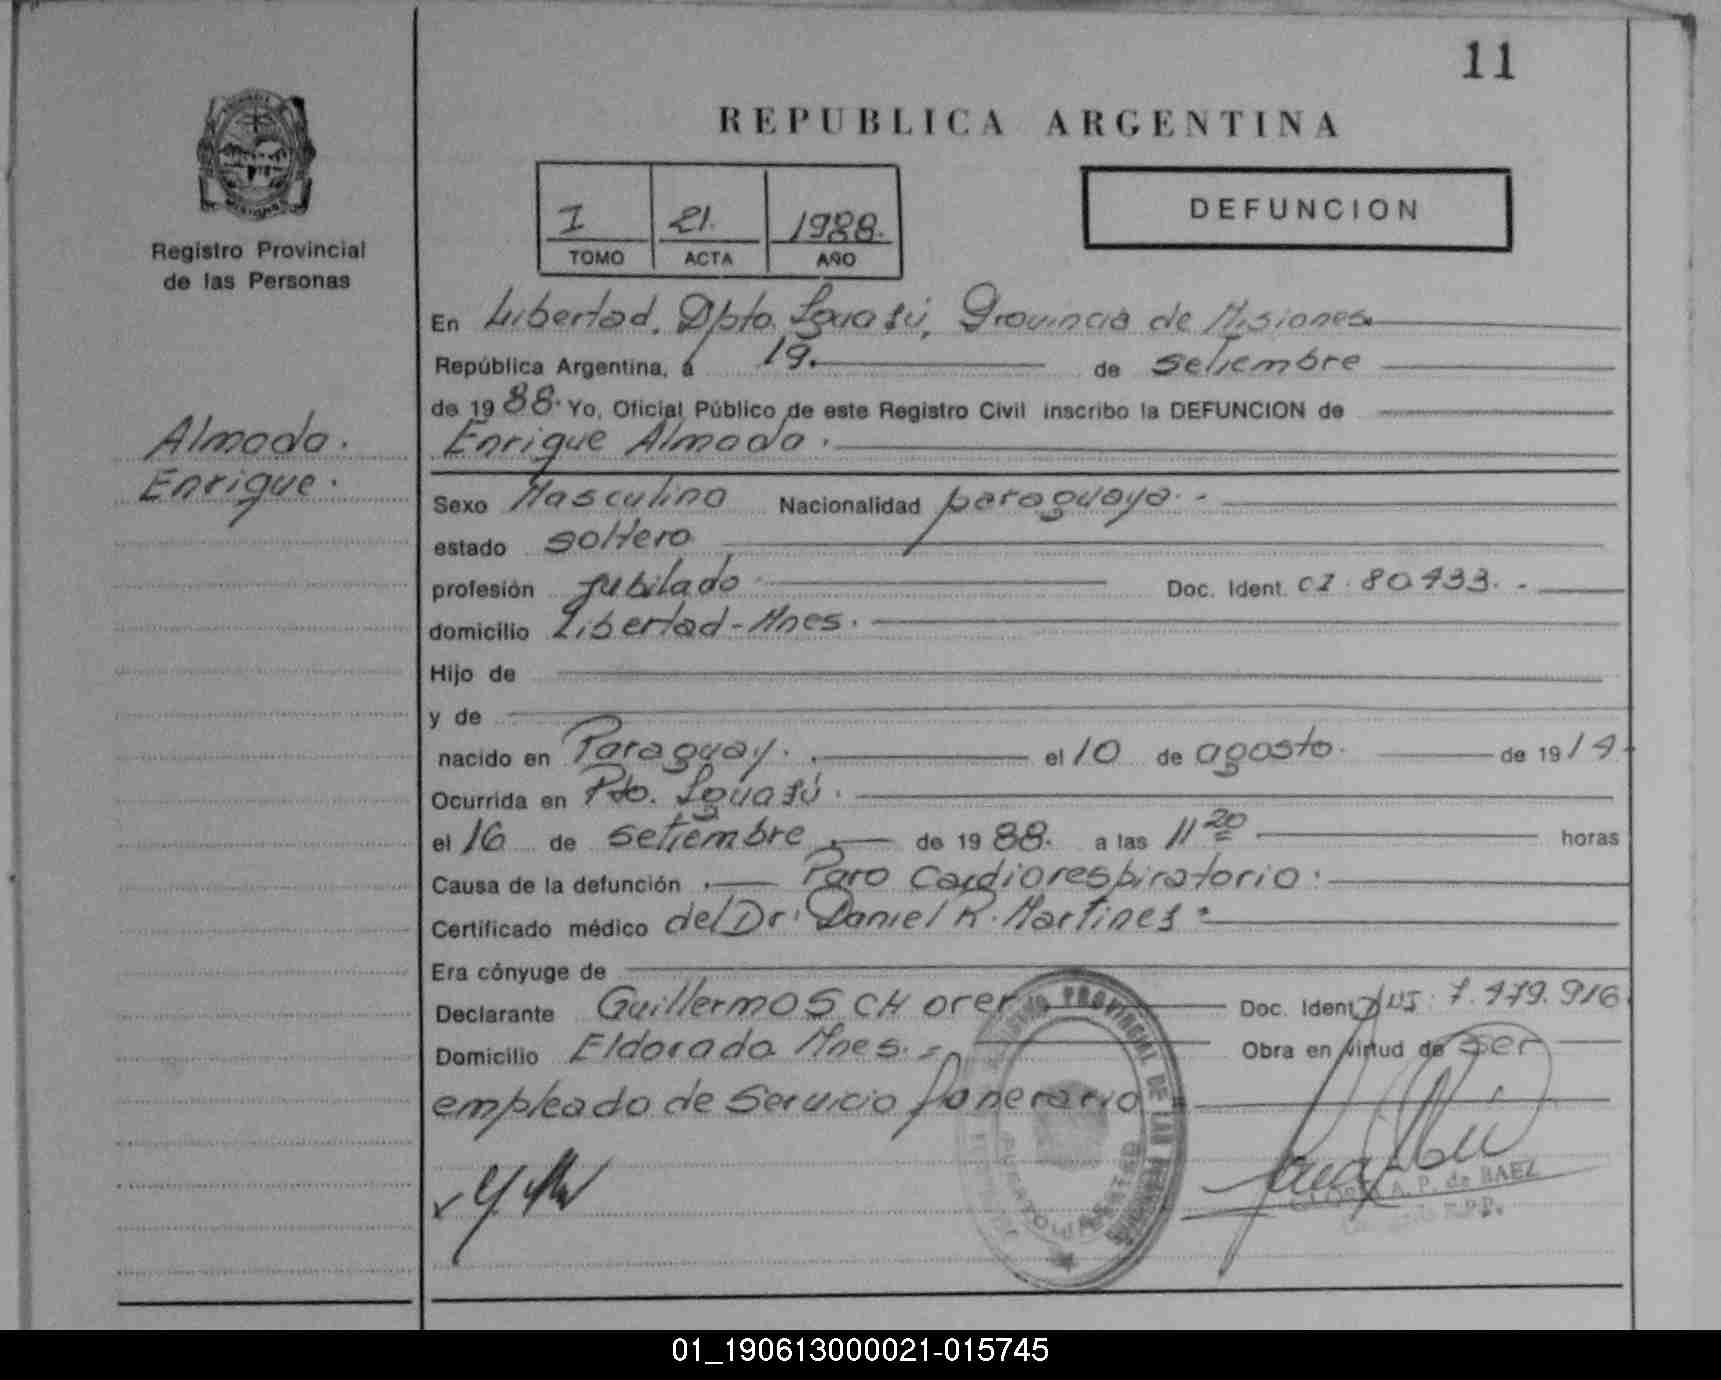 11
REPUBLICA ARGENTINA
I 21. 1988.
TOMO ACTA AÑO
DEFUNCION
Registro Provincial
de las Personas
Almada.
Enrique.
En Libertad, Dpto. Iguazú, Provincia de Misiones.
República Argentina, á 19. de setiembre
de 1988. Yo, Oficial Público de este Registro Civil inscribo la DEFUNCION de
Enrique Almada.
Sexo Masculino Nacionalidad paraguaya.-
estado soltero
profesión jubilado. Doc. Ident. CI. 80.433.-
domicilio Libertad-Mnes.
Hijo de
y de
nacido en Paraguay. el 10 de agosto. de 1914.
Ocurrida en Pto. Iguazú.
el 16 de setiembre de 1988. a las 11 20 horas
Causa de la defunción Paro Cardiorespiratorio.
Certificado médico del Dr. Daniel R. Martines.
Era cónyuge de
Declarante Guillermo SCHorer Doc. Ident. 7.479.916.
Domicilio Eldorado Mnes.- Obra en virtud de ser
empleado de Servicio fonerario
REGISTRO PROVINCIAL DE LAS PERSONAS
PUERTO LIBERTAD
A. P. de BAEZ
01_190613000021-015745